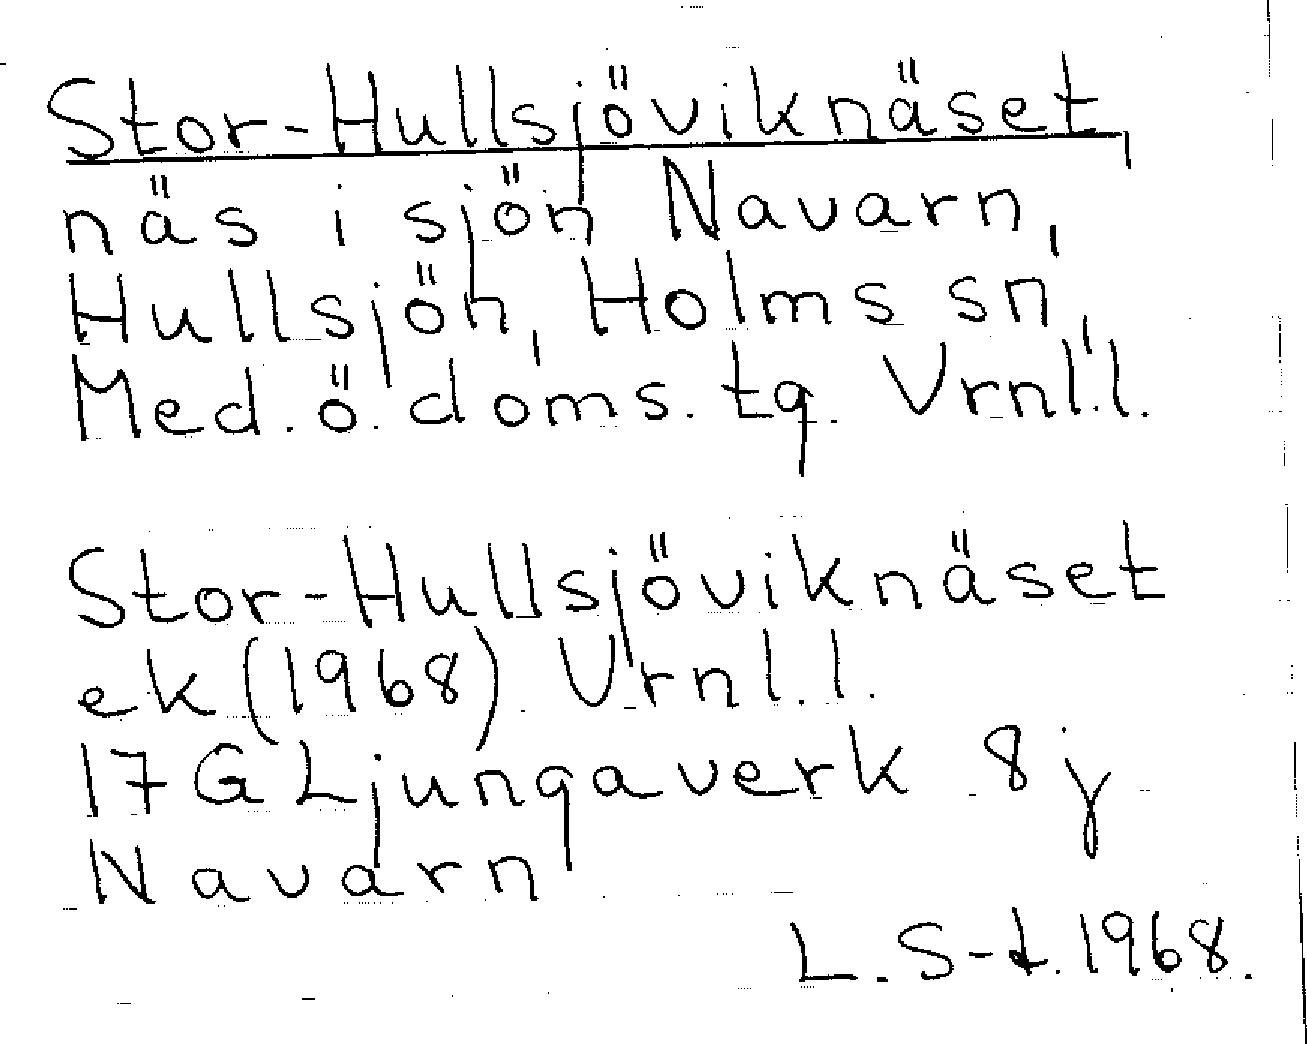 Stor-Hullsjöviknäset,
näs i sjön Navarn,
Hullsjön, Holms sn,
Med. ö. doms. tg. Vrnl.l.
Stor-Hullsjöviknäset
ek (1968) Vrnl.l.
17G Ljungaverk 8j
Navarn
L. S-t. 1968.